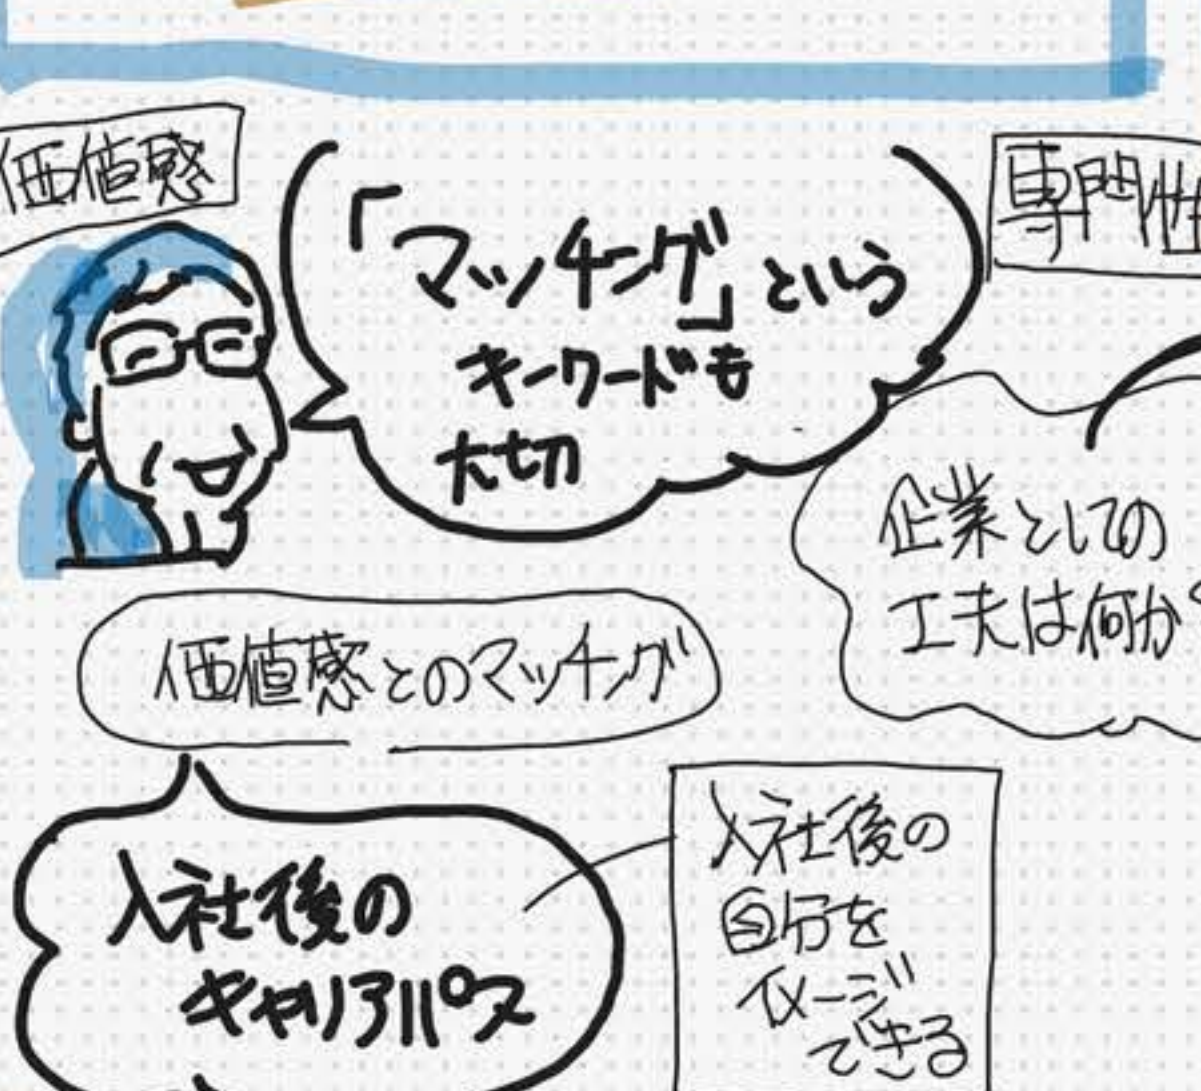 価値感
「マッチング」という
キーワードも
大切
専門性
企業としての
工夫は何か
価値感とのマッチング
入社後の
キャリアパス
入社後の
自分を
イメージ
できる